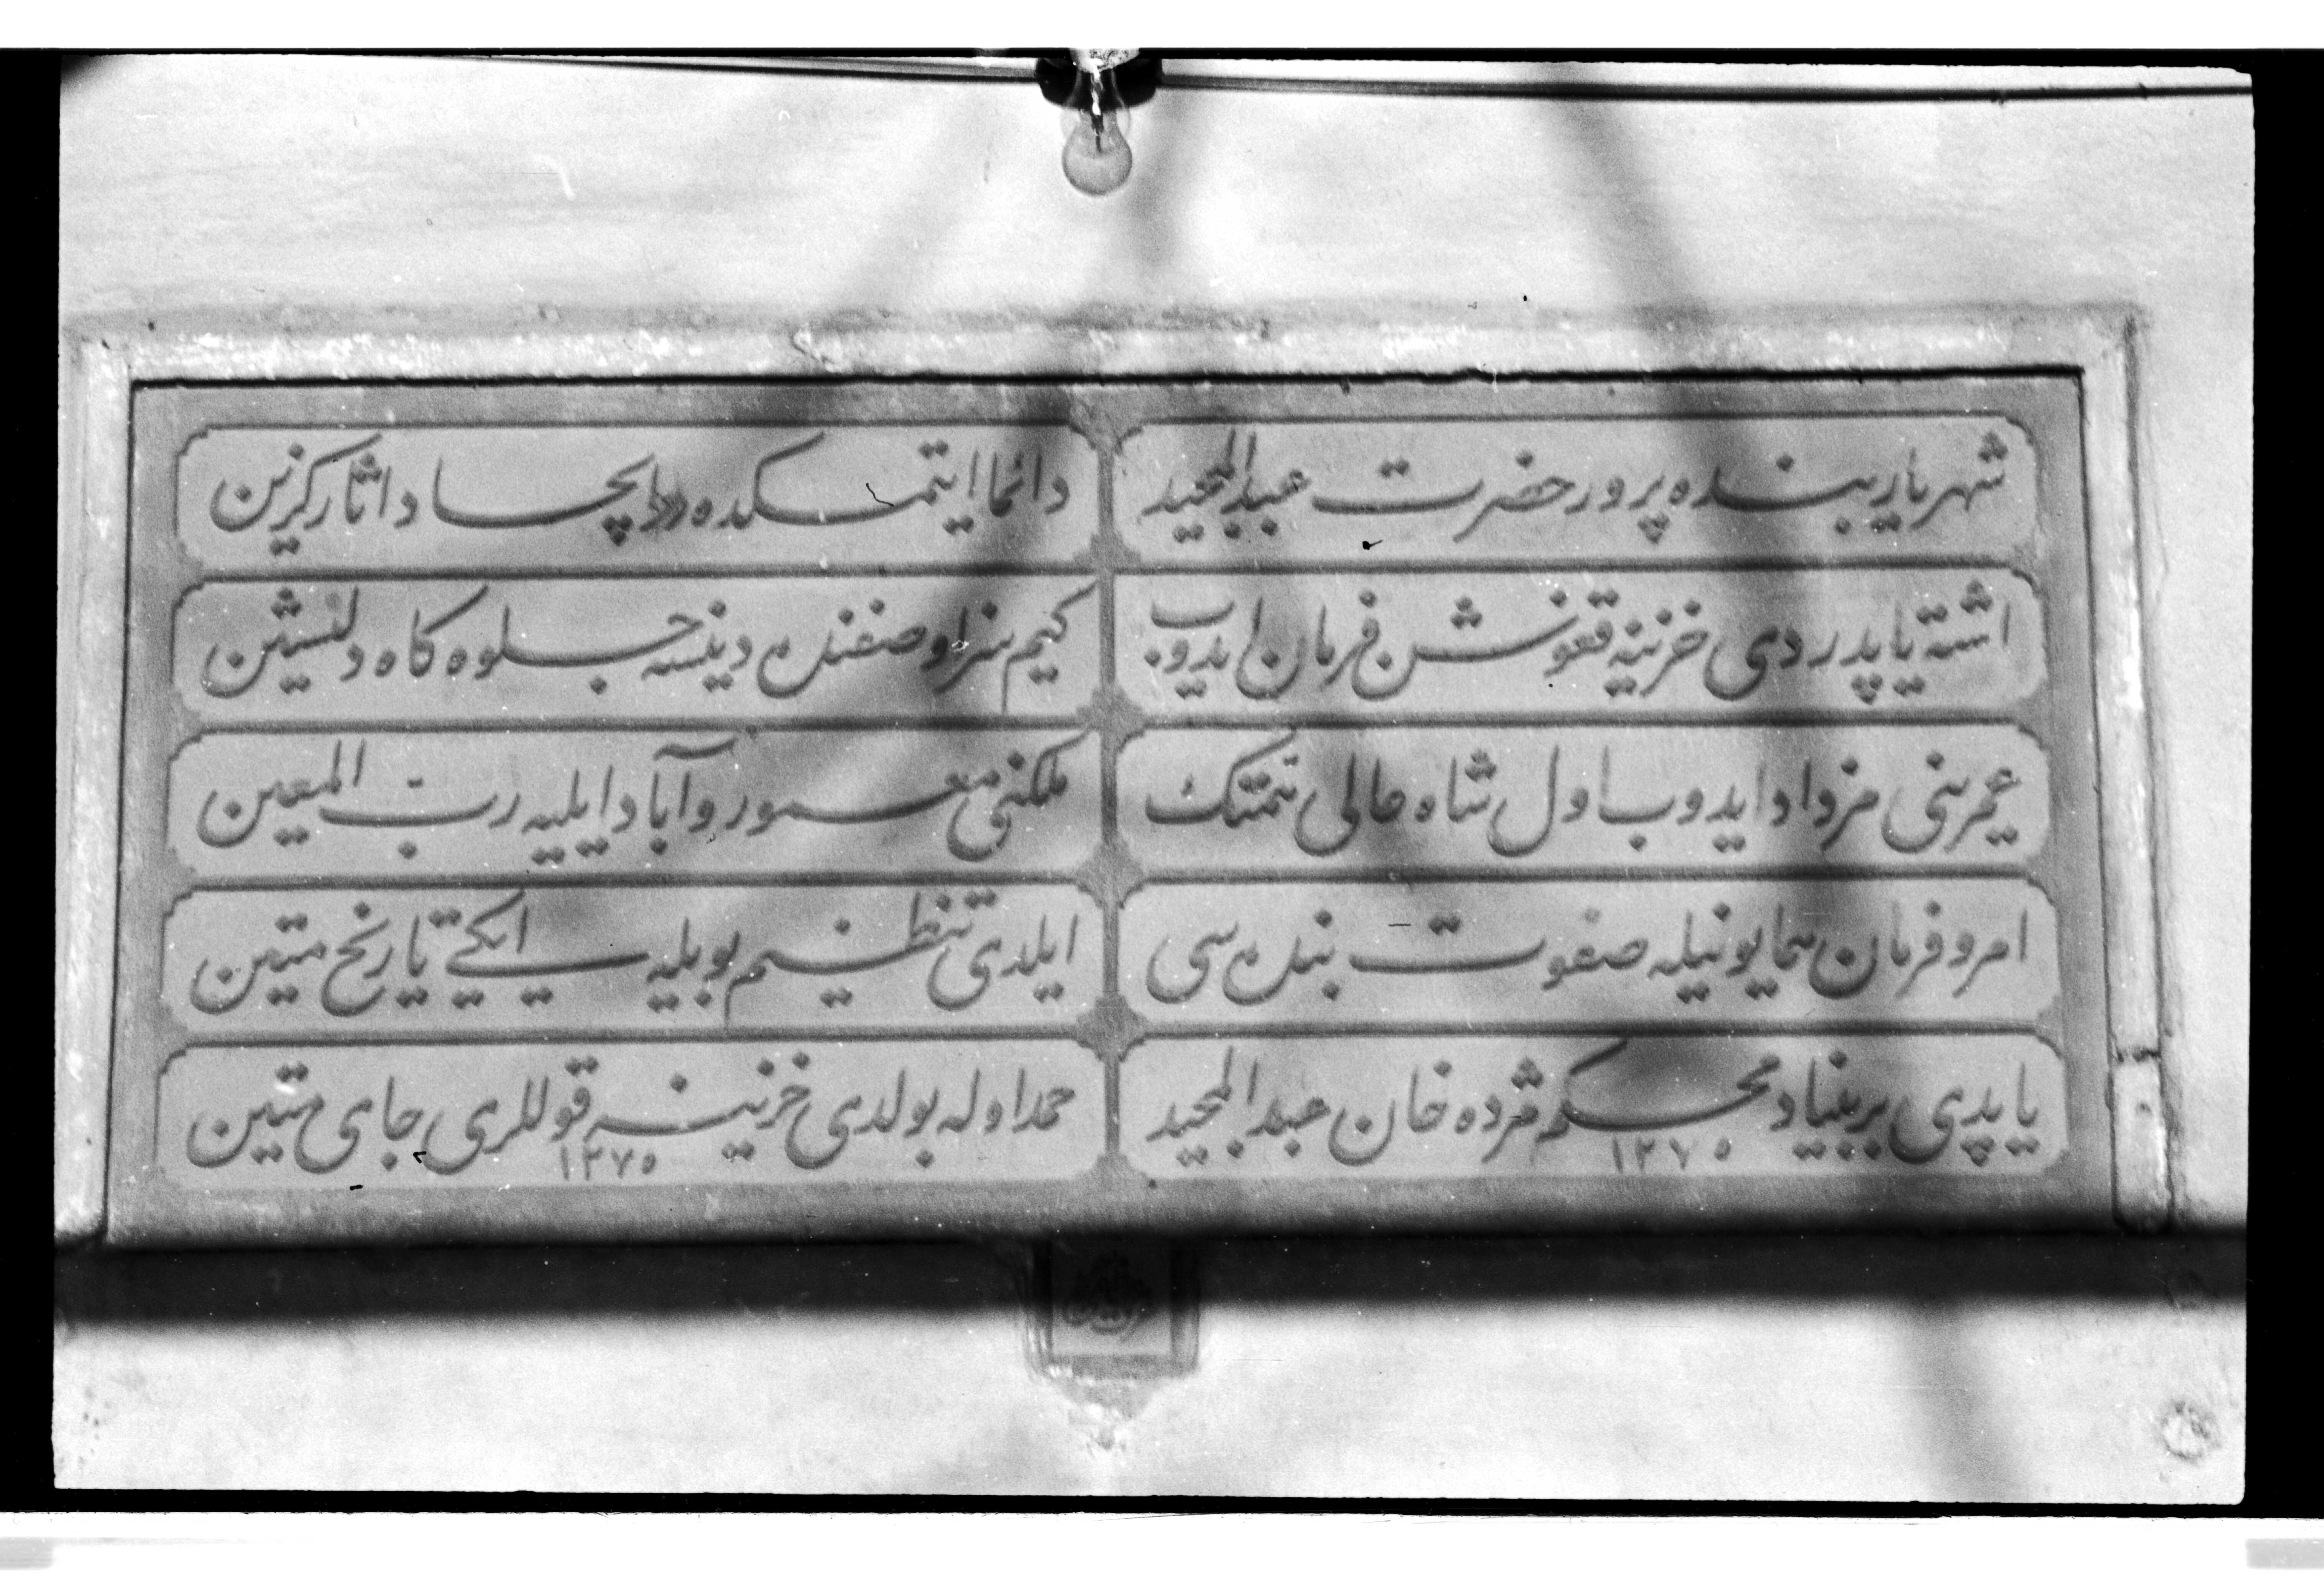 شهریار بنده پرور حضرت عبدالمجید
دائما ایتمکده در ایجاد اثار گزین
اشته یاپدردی خزینه قغوشن فرمان ایدوب
کیم سزا وصفنده دینسه جلوه کاه دلنشین
عمرینی مزداد ایدوب اول شاه عالی همتک
ملکنی معمور و آباد ایلیه رب المعین
امر و فرمان همایونیله صفوت بنده سی
ایلدی تنظیم بویله ایکی تاریخ متین
یاپدی بر بنیاد محکم مژده خان عبدالمجید
١٢٧٠
حمد اوله بولدی خزینه قوللری جای متین
١٢٧٠